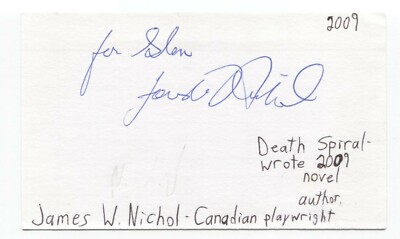 2009
for
Death Spiral-
wrote 2009
novel
author,
James W. Nichol - Canadian playwright